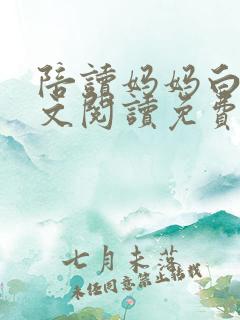 陪讀媽媽白
文閱讀免費
七月未落
未經同意禁止轉載